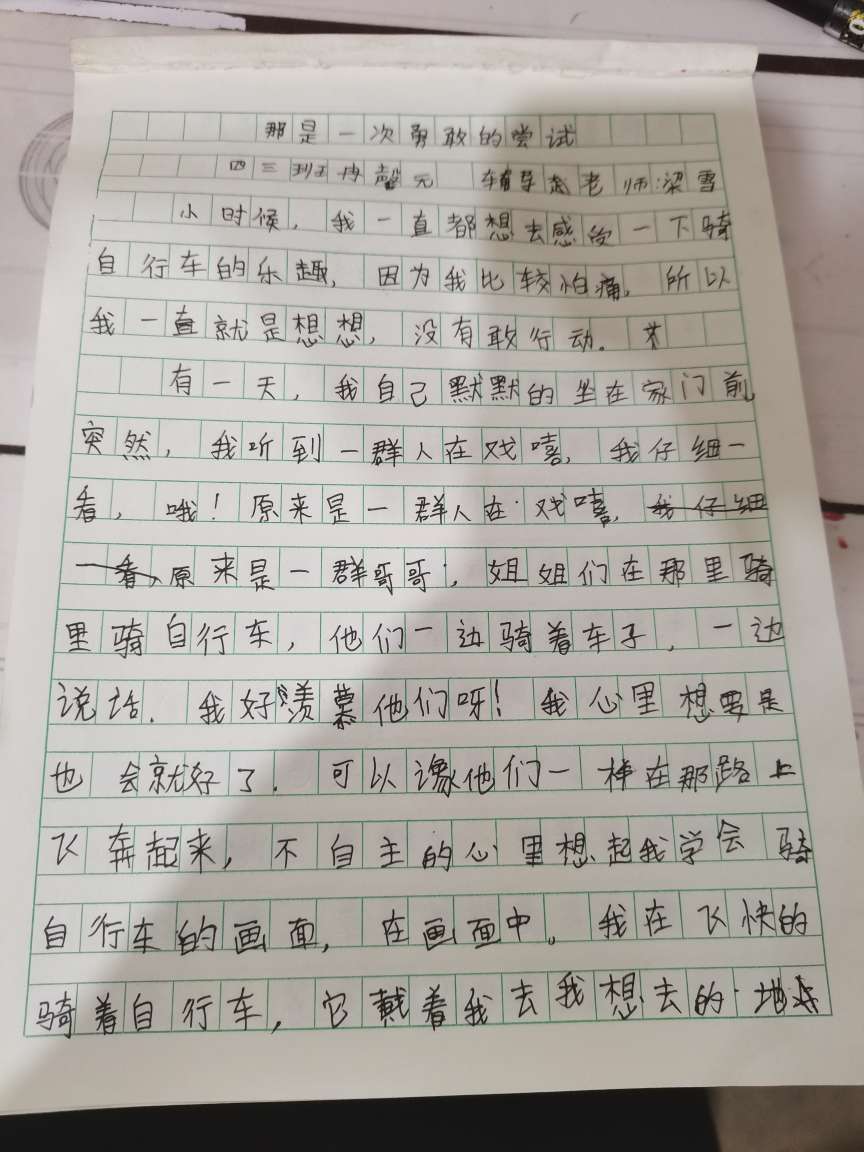 那是一次勇敢的尝试
四三班 冉馨元 辅导老师:梁雪
小时候,我一直都想去感受一下骑
自行车的乐趣,因为我比较怕痛,所以
我一直就是想想,没有敢行动.
有一天,我自己默默的坐在家门前
突然,我听到一群人在戏嘻,我仔细一
看,哦!原来是一群人在戏嘻,我仔细
一看,原来是一群哥哥,姐姐们在那里骑
里骑自行车,他们一边骑着车子,一边
说话.我好羡慕他们呀!我心里想要是
也会就好了.可以像他们一样在那路上
飞奔起来,不自主的心里想起我学会骑
自行车的画面,在画面中。我在飞快的
骑着自行车,它戴着我去我想去的地